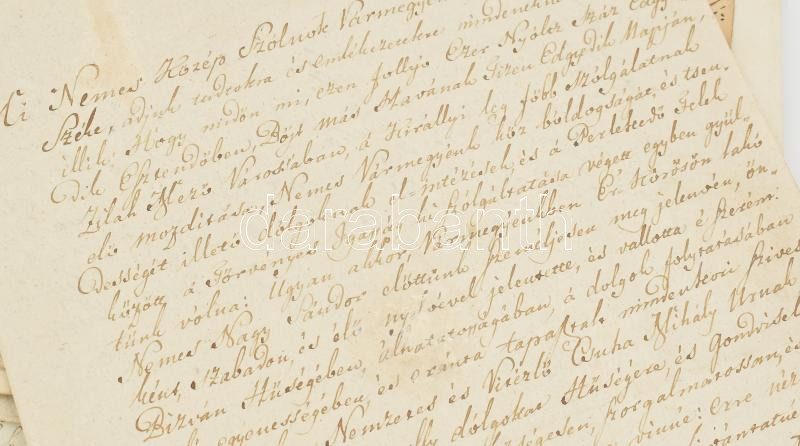 Mi Nemes Közép Szólnok Vármegyén
Széke, adjuk tudtokra és emlékezetekre mindeneknek
illik; Hogy midőn mi, ezen folljo Ezer Nyóltz Száz Edgy
dik Esztendőben, Böjt más Havának Tizen Edgyedik Napján,
Zilah Mező Várossában, a Királlyi leg főbb szolgálatnak
elő mozditása, Nemes Vármegyénk köz boldogságát, és tsen-
dességét illető dolgoknak el-intézések, és a Perlekedő Felek
között a Törvényes Igasság ki szólgáltatása végett egyben gyül-
tünk vólna: Ugyan akkor, Vármegyénkben Ér Körösön lakó
Nemes Nagy Sándor előttünk személjesen meg jelenvén, ön-
ként, szabadon, és élő nyelvével jelentette, és vallotta é szerént
Bizván Hűségében, álhatatosságában, a dolgok folytatásában
egyenességében, és eránta tapasztalt mindenkori szives
Nemzetes és Vitézlő Csuha Mihály Urnak
dolgokat Hűségesen, és Gondvisel
szorgalmatossan, és
vinné: erre néz
darabanth